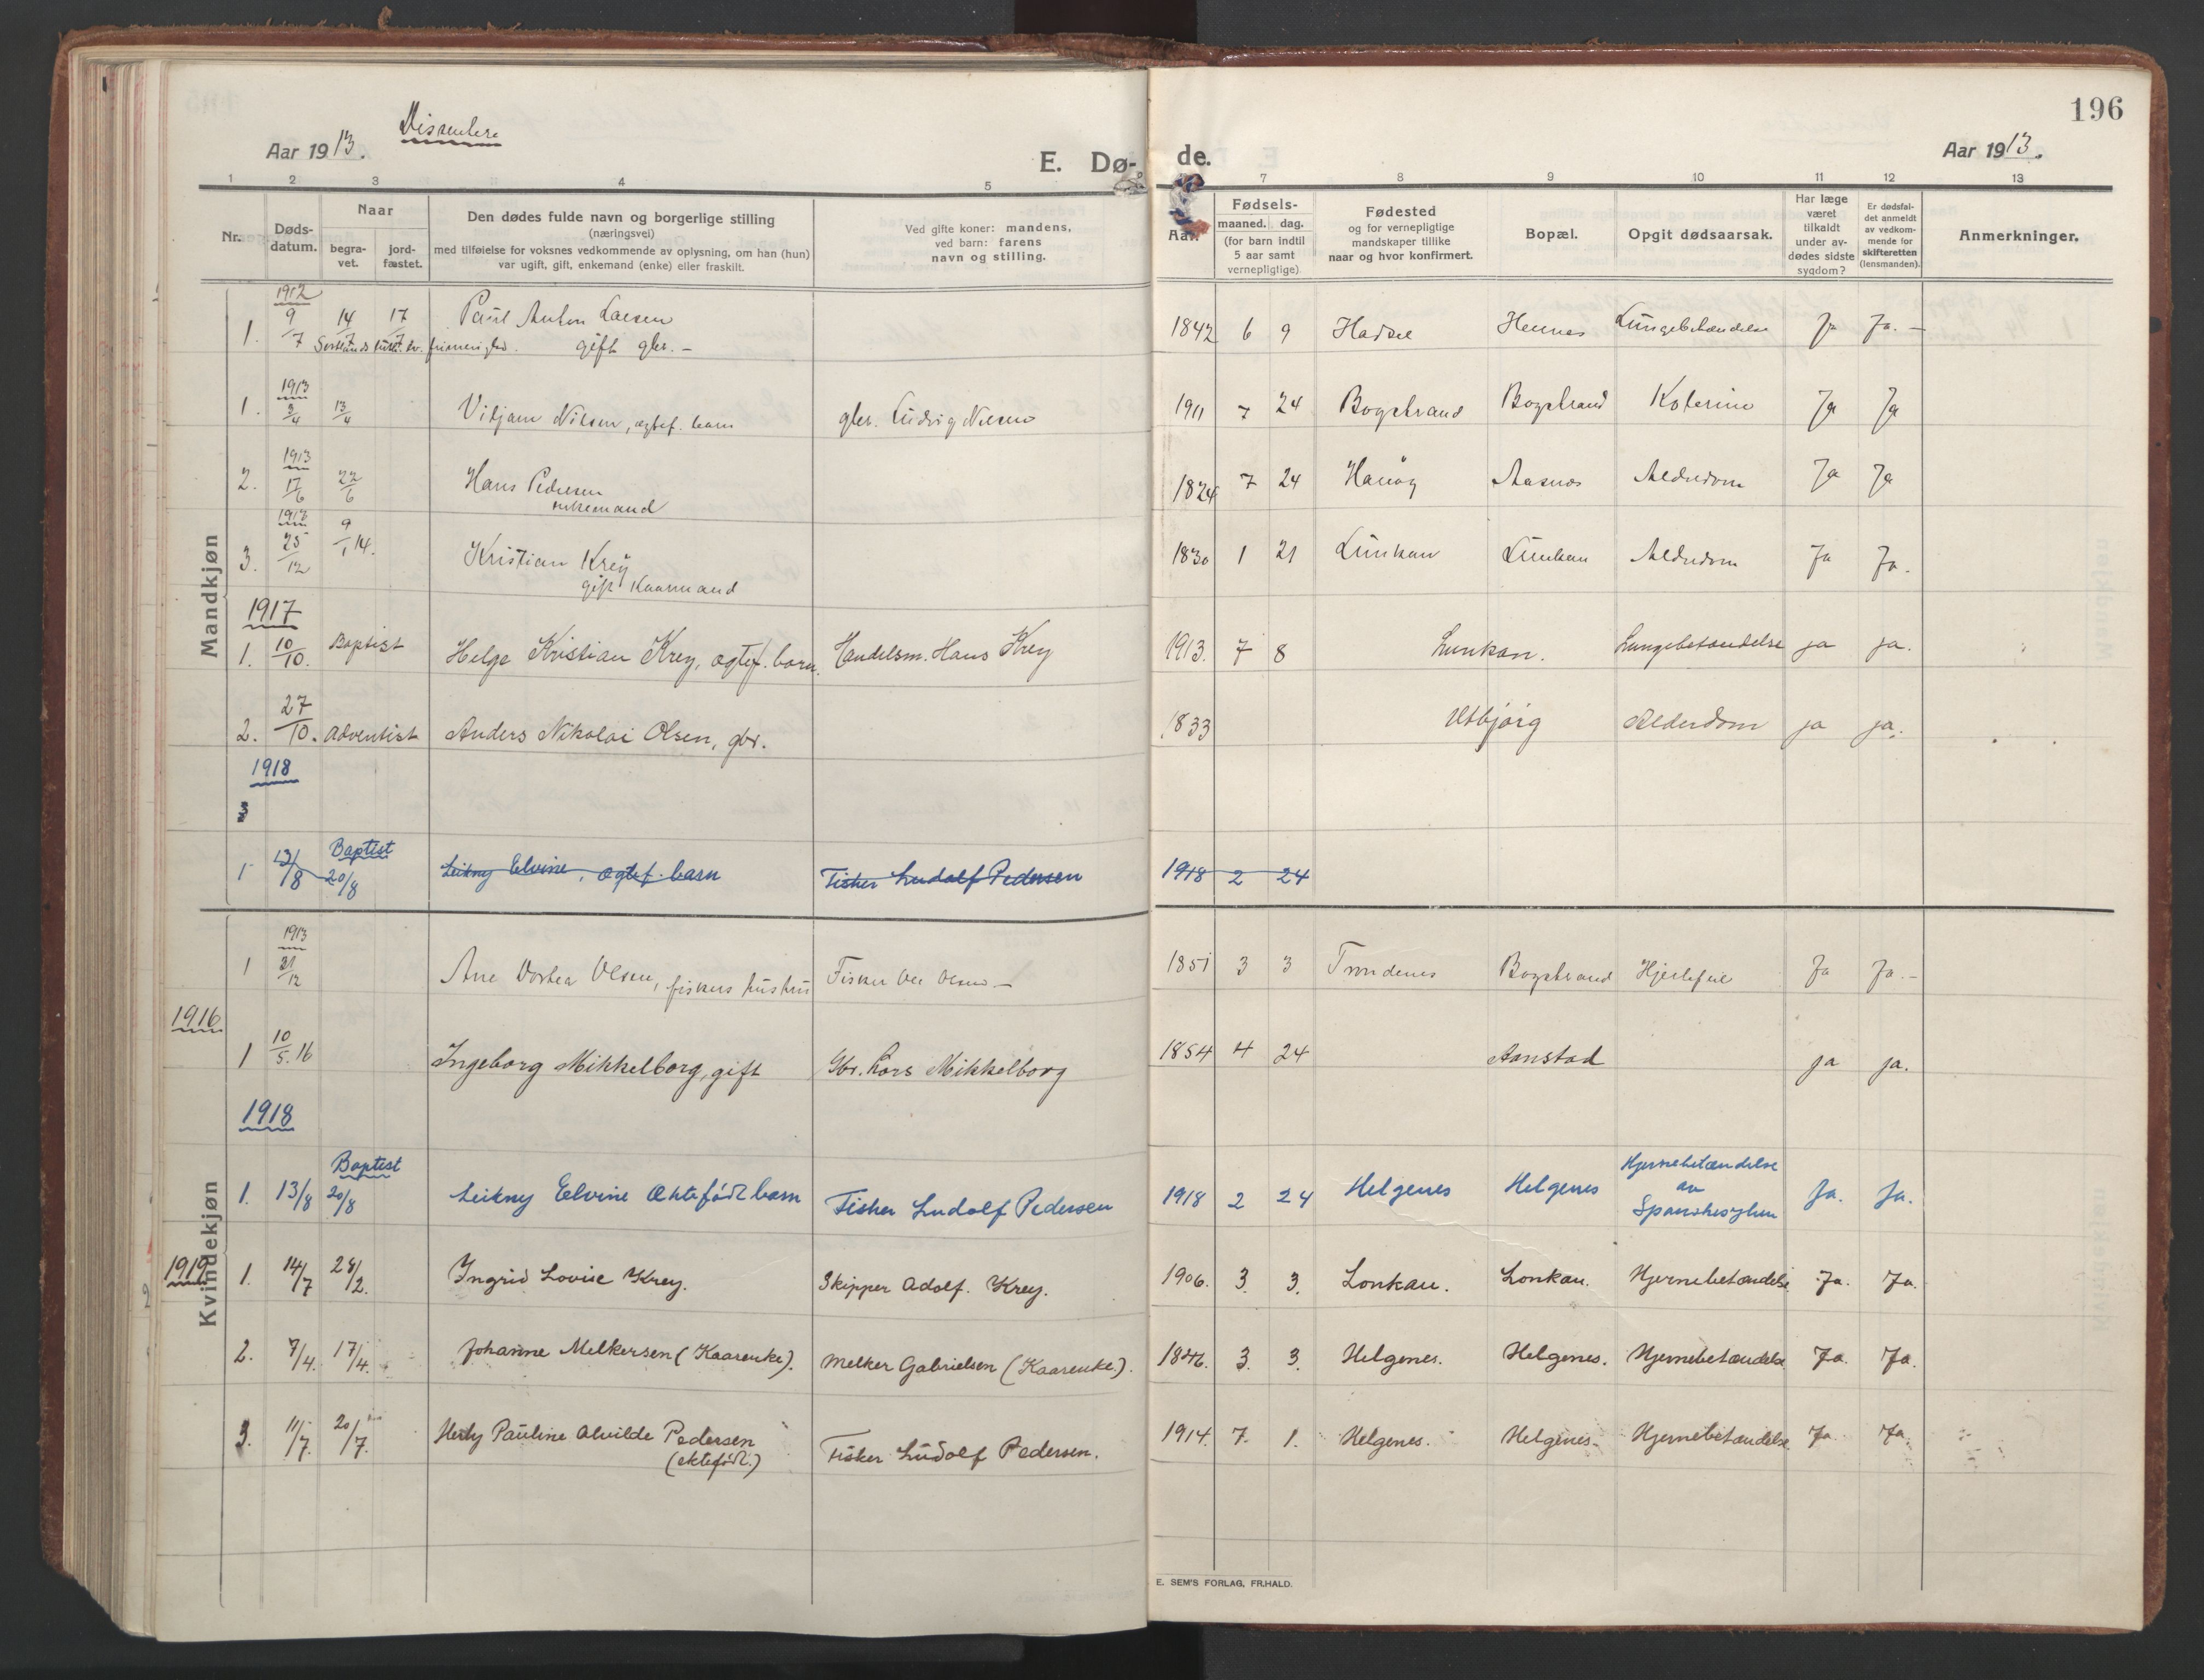 196
Dissentere
Aar 1913.
E. Dø-
de.
Aar 1913.
1 2 3 4 5 7 8 9 10 11 12 13
Nr.
Døds-
datum.
Naar
begra-
vet.
jord-
fæstet.
Den dødes fulde navn og borgerlige stilling
(næringsvei)
med tilføielse for voksnes vedkommende av oplysning, om han (hun)
var ugift, gift, enkemand (enke) eller fraskilt.
Ved gifte koner: mandens,
ved barn: farens
navn og stilling.
Aar.
Fødsels-
maaned. dag.
(for barn indtil
5 aar samt
vernepligtige)
Fødested
og for vernepligtige
mandskaper tillike
naar og hvor konfirmert.
Bopæl.
Opgit dødsaarsak.
Har læge
været
tilkaldt
under av-
dødes sidste
sygdom?
Er dødsfal-
det anmeldt
av vedkom-
mende for
skifteretten
(lensmanden).
Anmerkninger.
Mandkjøn
1912
1. 9/7 14/7 17/7 Paul Anton Larsen 1842 6 9 Hadsel Hennes Lungebetændelse Ja Ja. –
gift gbr. –
1913
1. 3/4 13/4 Viljam Nilsen, ægtef. barn gbr. Ludvig Nilsen 1911 7 24 Bogstrand Bogstrand Kolerine Ja Ja
1913
2. 17/6 22/6 Hans Pedersen 1824 7 24 Hanøy Aasnes Alderdom Ja Ja
enkemand
1913
3. 25/12 9/1 14. Kristian Krey 1830 1 21 Lunkan Lunkan Alderdom Ja Ja.
gift Kaarmand
1917
1. 10/10. Baptist Helge Kristian Krey, ægtef. barn. Handelsm. Hans Krey 1913. 7 8 Lunkan. Lungebetændelse ja ja.
2. 27/10. Adventist Anders Nikolai Olsen, gbr. 1833 Vetbjørg Alderdom ja ja.
1918
3
Baptist
1 13/8 20/8 Leikny Elvine, ægtef. barn Fisker Ludolf Pedersen 1918 2 24
Kvindekjøn
1913
1 31/12 Ane Dortea Olsen, fiskers hustru Fisker Ole Olsen – 1851 3 3 Trondenes Bogstrand Hjertefeil Ja Ja. –
1916.
1 10/5. 16 Ingeborg Mikkelborg, gift Gbr. Lars Mikkelborg 1854 4 24 Aanstad ja ja.
1918
Baptist
1. 13/8 20/8 Leikny Elvine Ektefödt barn Fisker Ludolf Pedersen 1918 2 24 Helgenes Helgenes Hjernebetændelse
av
Spanskesyken Ja. Ja.
1919 1. 14/7 28/2. Ingrid Lovise Krey. Skipper Adolf. Krey. 1906. 3. 3. Lonkan. Lonkan. Hjernebetændelse. Ja. Ja.
2. 7/4. 17/4. Johanne Melkersen (Kaarenke). Melker Gabrielsen (Kaarenke). 1846. 3. 3. Helgenes. Helgenes. Hjernebetændelse Ja. Ja.
3. 11/7. 20/7. Herly Pauline Alvilde Pedersen Fisker Ludolf Pedersen. 1914. 7. 1. Helgenes. Helgenes. Hjernebetændelse Ja. Ja.
(ektefödt.)
E. SEM'S FORLAG, FR.HALD.